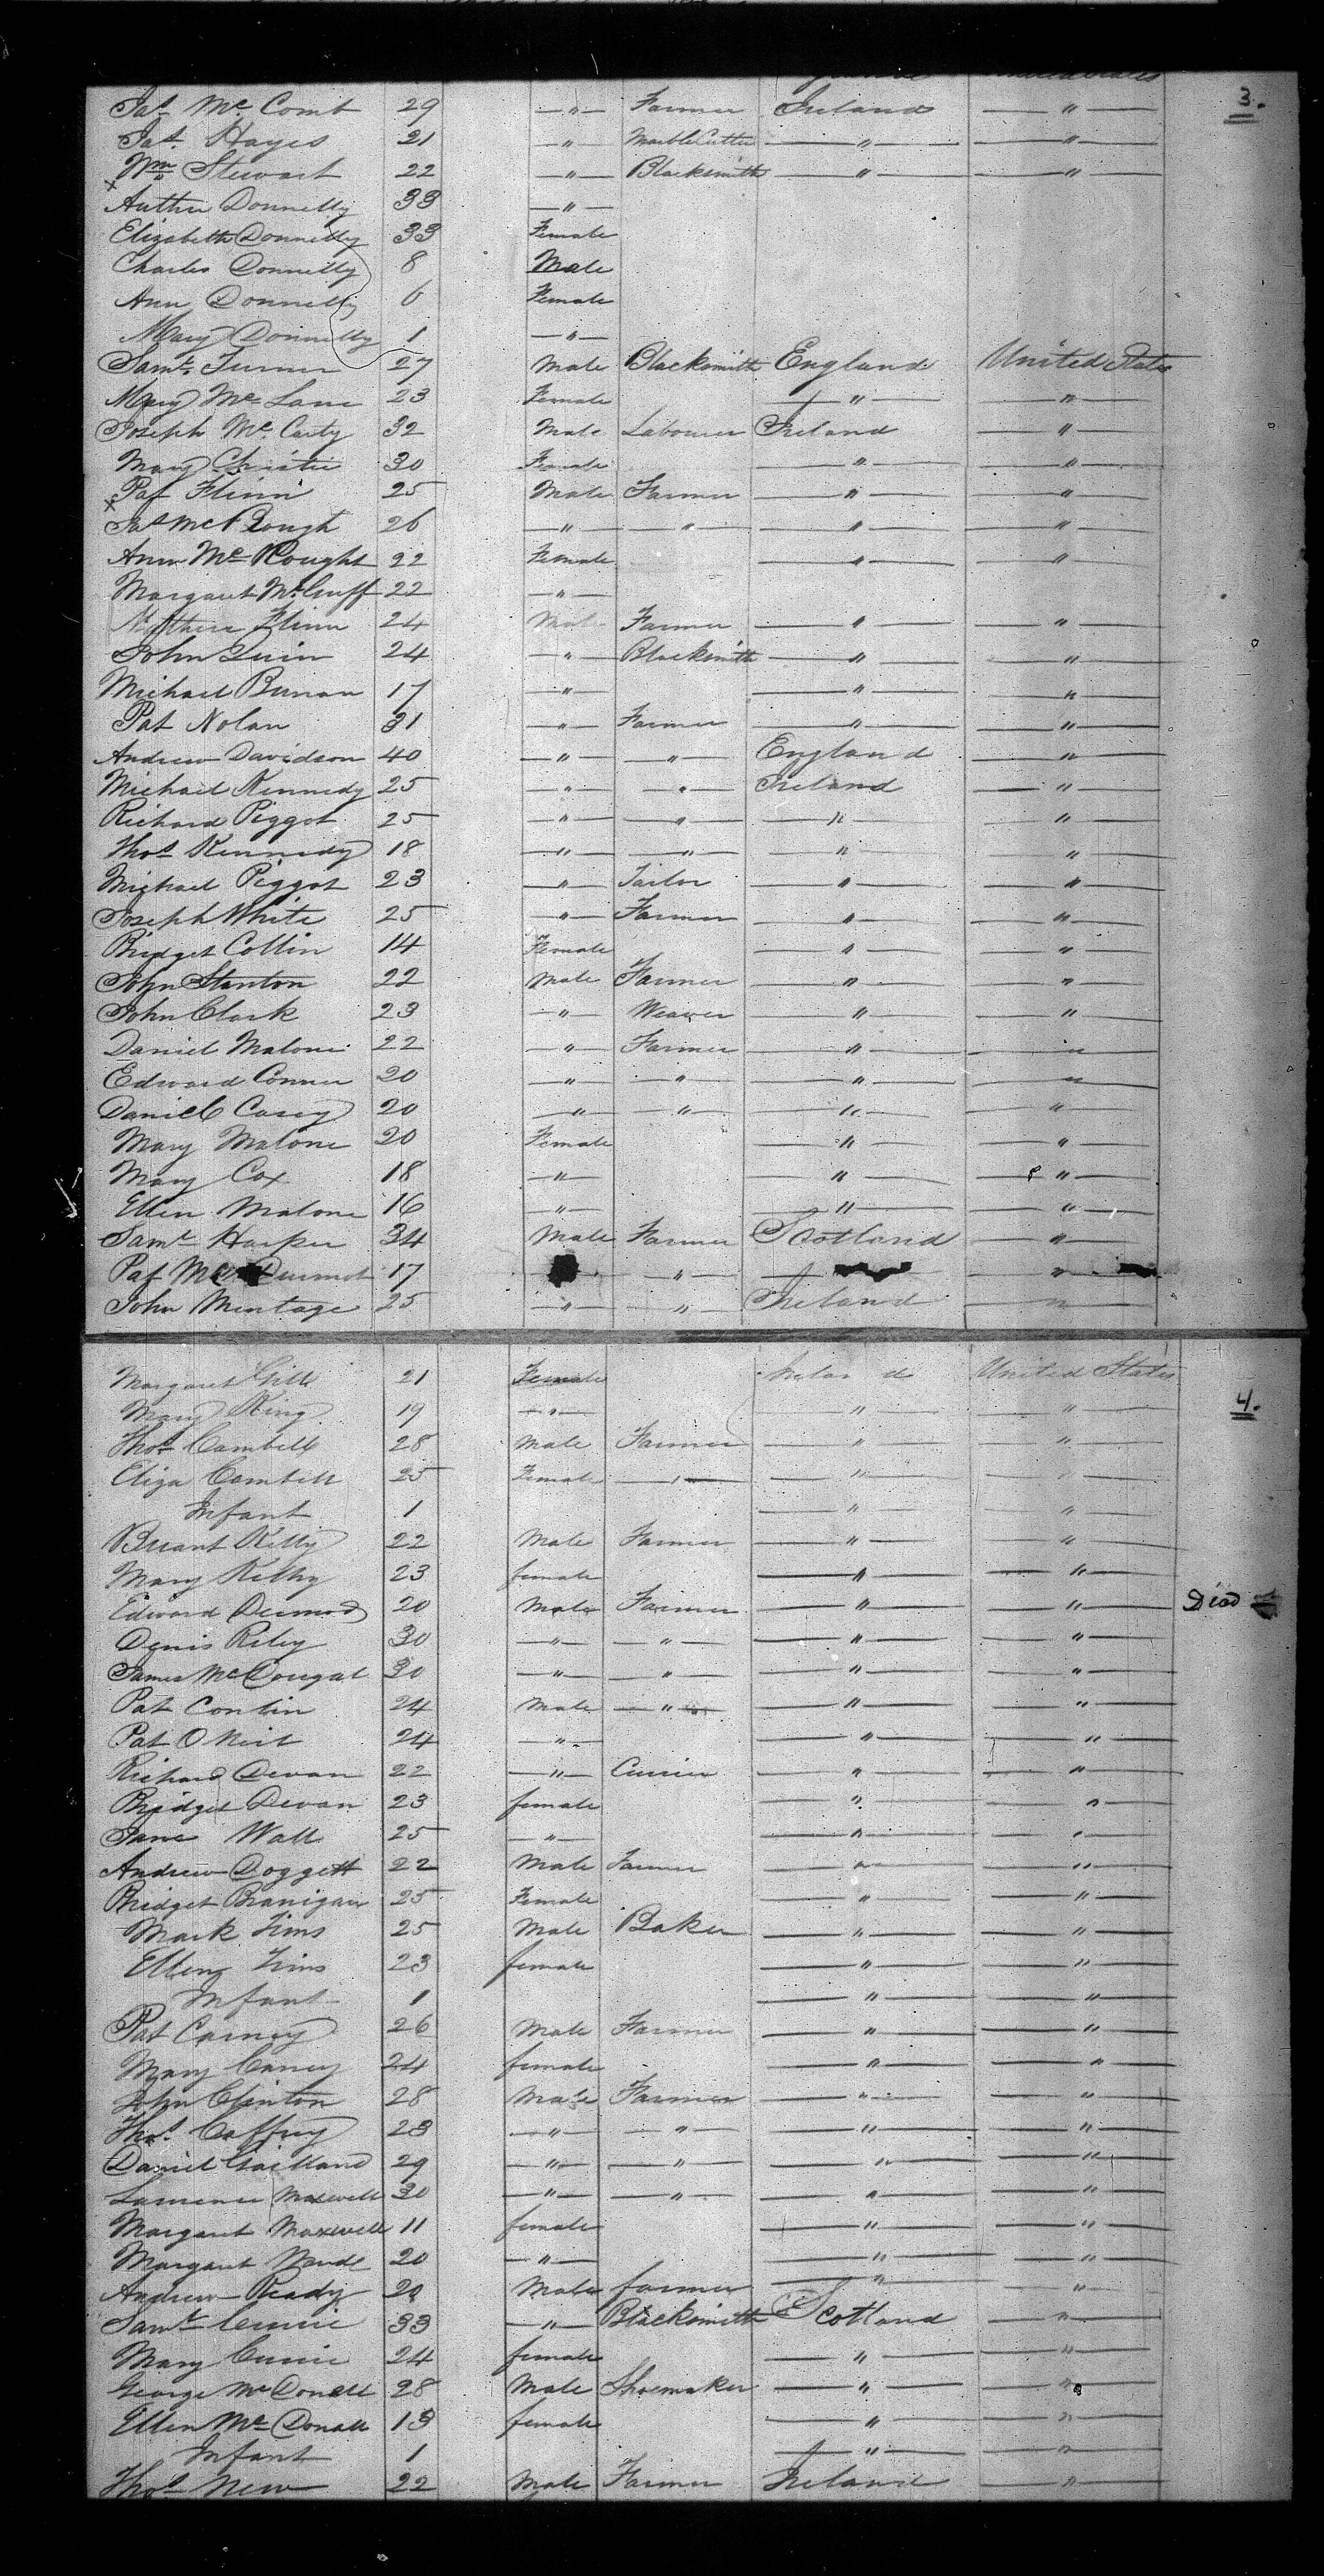 Jas. Mc. Comb 29 — " — Farmer Ireland — " — 3.
Jas. Hayes 21 — " — Marble Cutter — " — — " —
Wm Stewart 22 — " — Blacksmith — " — — " —
x Authur Donnelly 33 — " —
Elizabeth Donnelly 33 Female
Charles Donnelly 8 Male
Ann Donnelly 6 Female
Mary Donnelly 1 — " —
Saml. Turner 27 Male Blacksmith England United States
Mary Mc Lane 23 Female — " — — " —
Joseph Mc. Carty 32 Male Labourer Ireland — " —
Mary Christie 30 Female — " — — " —
Pat Flinn 25 Male Farmer — " — — " —
x Jas Mc Rought 26 — " — — " — — " — — " —
Ann Mc Rought 22 Female — " — — " —
Margaret 22 — " —
Flinn 24 Male Farmer — " — — " —
John Quin 24 — " — Blacksmith — " — — " —
Michael 17 — " — — " — — " —
Pat Nolan 31 — " — Farmer — " — — " —
Andrew Davidson 40 — " — — " — England — " —
Michael Kennedy 25 — " — — " — Ireland — " —
Richard Piggot 25 — " — — " — — " — — " —
Thos Kennedy 18 — " — — " — — " — — " —
Michael Piggot 23 — " — Tailor — " — — " —
Joseph White 25 — " — Farmer — " — — " —
Bridget Collin 14 Female — " — — " —
John Stanton 22 Male Farmer — " — — " —
John Clark 23 — " — Weaver — " — — " —
Daniel Malone 22 — " — Farmer — " — — " —
Edward Conner 20 — " — — " — — " — — " —
Daniel Casey 20 — " — — " — — " — — " —
Mary Malone 20 Female — " — — " —
Mary Cox 18 — " — — " — — " —
Ellen Malone 16 — " — — " — — " —
Saml Harper 34 Male Farmer Scotland — " —
Pat Mc Durmot 17 — " — — " —
John Mentage 25 — " — — " — Ireland — " —
Margaret Gill 21 Female Ireland United States 4.
Mary King 19 — " — — " — — " —
Thos Cambell 28 Male Farmer — " — — " —
Eliza Cambell 25 Female — " — — " — — " —
Infant 1 — " — — " —
Briant Kelly 22 Male Farmer — " — — " —
Mary Kelly 23 female — " — — " —
Edward 20 Male Farmer — " — — " — Died
Denis Riley 30 — " — — " — — " — — " —
James Mc Dougal 30 — " — — " — — " — — " —
Pat Conlin 24 Male — " — — " — — " —
Pat O Neil 24 — " — — " — — " —
Richard Devan 22 — " — Currier — " — — " —
Bridget Devan 23 female — " — — " —
Jane Wall 25 — " — — " — — " —
Andrew Doggett 22 Male Farmer — " — — " —
Bridget Branigan 25 Female — " — — " —
Mark Tims 25 Male Baker — " — — " —
Ellen Tims 23 female — " — — " —
Infant 1 — " — — " —
Pat Carney 26 Male Farmer — " — — " —
Mary Carney 24 female — " — — " —
John Clinton 28 Male Farmer — " — — " —
Thos. Caffrey 23 — " — — " — — " — — " —
Daniel 29 — " — — " — — " — — " —
Laurence Maxwell 30 — " — — " — — " — — " —
Margaret Maxwell 11 female — " — — " —
Margaret 20 — " — — " — — " —
Andrew Ready 20 Male farmer — " — — " —
Saml Currie 33 — " — Blacksmith Scotland — " —
Mary Currie 24 female — " — — " —
George Mc Donall 28 Male Shoemaker — " — — " —
Ellen Mc Donall 13 female — " — — " —
Infant 1 — " — — " —
Thos New 22 Male Farmer Ireland — " —